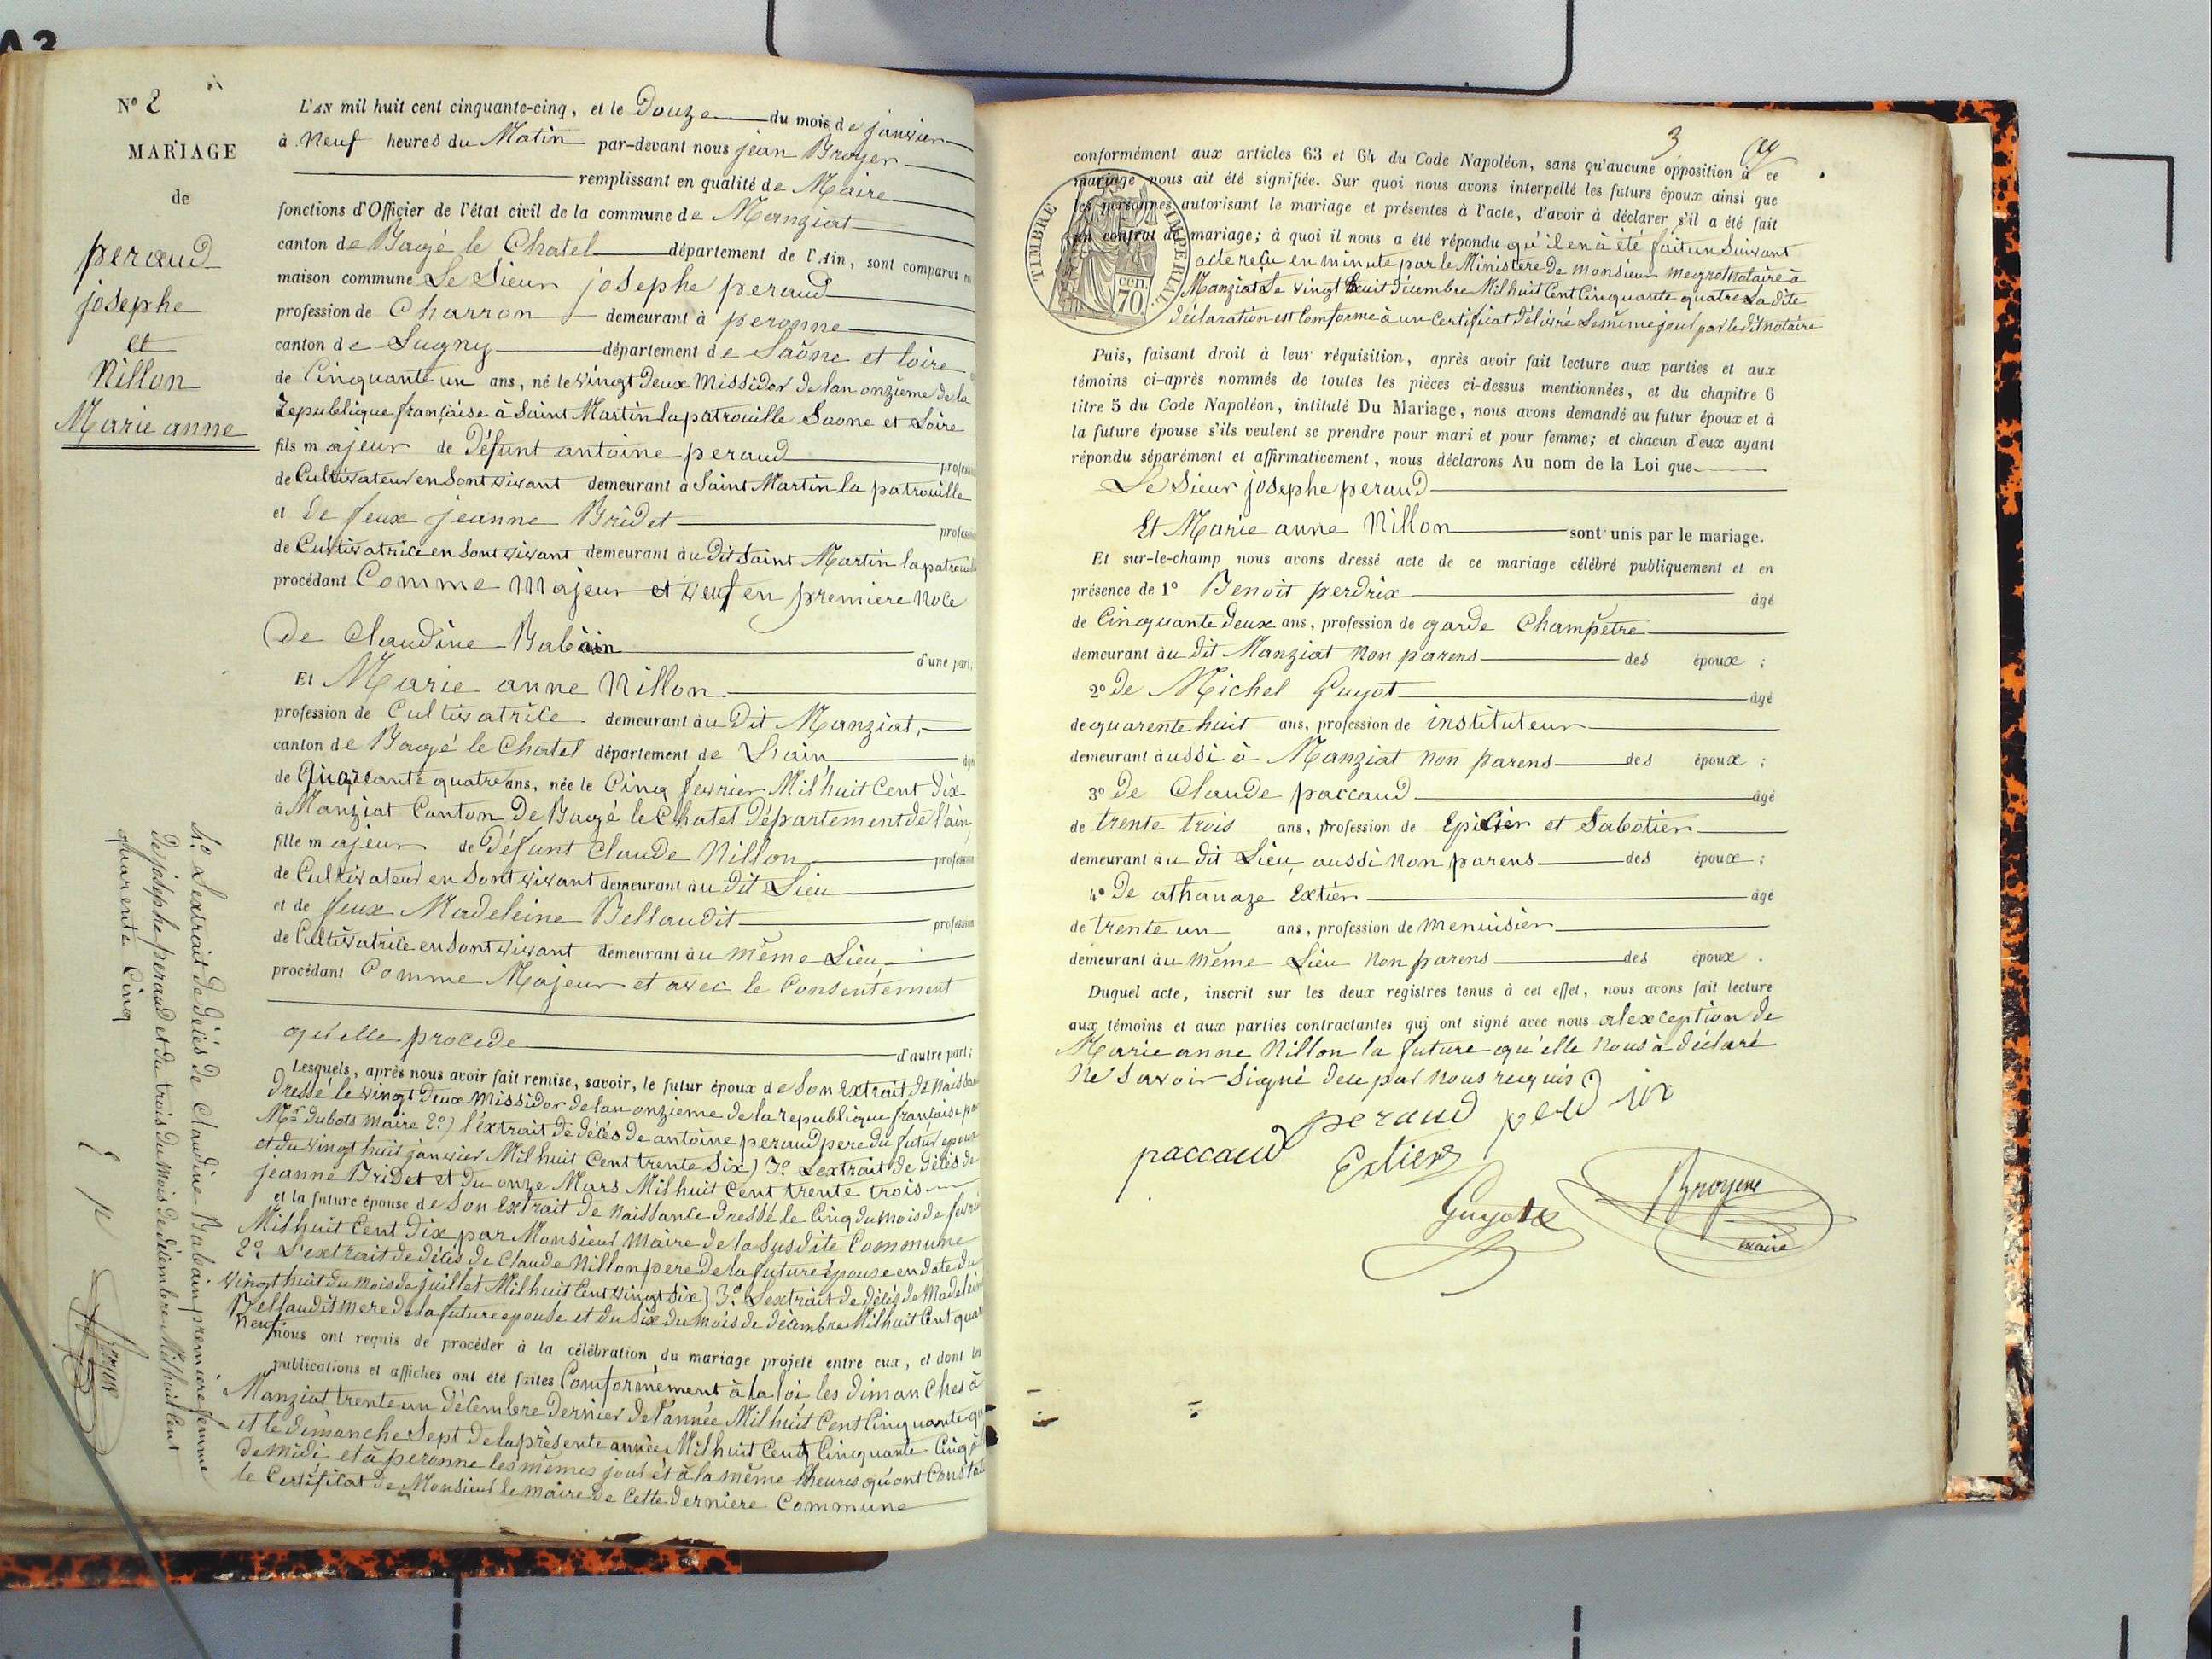 A3
N° 2
MARIAGE
de
peraud
josephe
et
Nillon
Marie anne
L'AN mil huit cent cinquante-cinq, et le Douze du mois de janvier
à Neuf heures du Matin par-devant nous jean Broyer
remplissant en qualité de Maire
fonctions d'Officier de l'état civil de la commune de Manziat
canton de Baugé le Chatel département de l'Ain, sont comparus en
maison commune Le Sieur josephe peraud
profession de Charron demeurant à peronne
canton de Lugny département de Saône et loire
de Cinquante un ans, né le vingt deux Missidor de lan onzième de la
republique française à Saint Martin la patrouille Saone et Loire
fils majeur de Défunt antoine peraud
de Cultivateur en Sont vivant demeurant à Saint Martin la patrouille
et de feux jeanne Bridet
de Cultivatrice en Sont vivant demeurant àu Dit Saint Martin la patrouille
procédant Comme Majeur et veuf en premiere Noce
de Claudine Balain
d'une part,
Et Marie anne Nillon
profession de Cultivatrice demeurant àu Dit Manziat,
canton de Baugé le Chatel département de L'ain
de Quarante quatre ans, née le Cinq fevrier Mil huit Cent Dix
à Manziat Canton De Baugé le Chatel Département de l'ain
fille majeur de Défunt Claude Nillon
de Cultivateur en Sont vivant demeurant àu Dit Lieu
et de feux Madeleine Bellaudit
de Cultivatrice en Sont vivant demeurant àu même Lieu
procédant Comme Majeur et avec le Consentement
qu'elle procede
d'autre part;
Lesquels, après nous avoir fait remise, savoir, le futur époux de Son Extrait de Naissance
Dressé le vingt Deux Missidor de lan onzieme de la republique française par
Mr Dubots maire 2°) l'éxtrait de Décés de antoine peraud pere du futur epoux
et du vingt huit janvier Mil huit Cent trente Six) 3° Lextrait de décés de
jeanne Bridet et du onze Mars Mil huit Cent trente trois
et la future épouse de Son Extrait de Naissance Dressé le Cinq du mois de fevrier
Mil huit Cent Dix par Monsieur Maire de la Susdite Commune
2° L'extrait de décés de Claude Nillon pere de la future épouse en date du
vingt huit du mois de juillet Mil huit Cent vingt Six) 3° Lextrait de Décés de Madeleine
Bellaudit mere de la future epouse et du Six du mois de Décembre Mil huit Cent quar
neuf nous ont requis de procéder à la célébration du mariage projeté entre eux, et dont les
publications et affiches ont été faites Comformément à la loi les Dimanches à
Manziat trente un Décembre Dernier de l'année Mil huit Cent Cinquante
et le Dimanche Sept de la présente année Mil huit Cent Cinquante Cinq à
de midi et à peronne les mêmes jour et à la même heures qu'ont Constat
le Certificat de Monsieur le maire de Cette Derniere Commune
Lextrait de décés de Claudine Balain premiere femme
de josephe peraud et du trois du Mois de décembre Mil huit Cent
quarente Cinq
3
conformément aux articles 63 et 64 du Code Napoléon, sans qu'aucune opposition à ce
mariage nous ait été signifiée. Sur quoi nous avons interpellé les futurs époux ainsi que
les personnes autorisant le mariage et présentes à l'acte, d'avoir à déclarer s'il a été fait
un contrat de mariage; à quoi il nous a été répondu qu'il en à été fait un Suivant
acte reçu en minute par le Ministere de Monsieur Meyrot Notaire à
Manziat Le vingt huit Décembre Mil huit Cent Cinquante quatre La dite
déclaration est Comforme à un Certificat délivré Le même jour par le dit Notaire
TIMBRE IMPERIAL
70 cen.
Puis, faisant droit à leur réquisition, après avoir fait lecture aux parties et aux
témoins ci-après nommés de toutes les pièces ci-dessus mentionnées, et du chapitre 6
titre 5 du Code Napoléon, intitulé Du Mariage, nous avons demandé au futur époux et à
la future épouse s'ils veulent se prendre pour mari et pour femme; et chacun d'eux ayant
répondu séparément et affirmativement, nous déclarons Au nom de la Loi que
Le Sieur josephe peraud
Et Marie anne Nillon sont unis par le mariage.
Et sur-le-champ nous avons dressé acte de ce mariage célébré publiquement et en
présence de 1° Benoit perdrix âgé
de Cinquante Deux ans, profession de garde Champêtre
demeurant àu dit Manziat Non parens des époux ;
2° de Michel Guyot âgé
de quarente huit ans, profession de instituteur
demeurant àussi à Manziat Non parens des époux ;
3° De Claude paccaud âgé
de trente trois ans, profession de Epicier et Sabotier
demeurant àu dit Lieu aussi Non parens des époux ;
4° De athanaze Extier âgé
de trente un ans, profession de Menuisier
demeurant àu même Lieu Non parens des époux .
Duquel acte, inscrit sur les deux registres tenus à cet effet, nous avons fait lecture
aux témoins et aux parties contractantes qui ont signé avec nous alexception de
Marie anne Nillon la future qu'elle Nous à déclaré
Ne Savoir Signé De ce par Nous requis
peraud perdrix
paccaud Extier
Guyot Broyer
maire